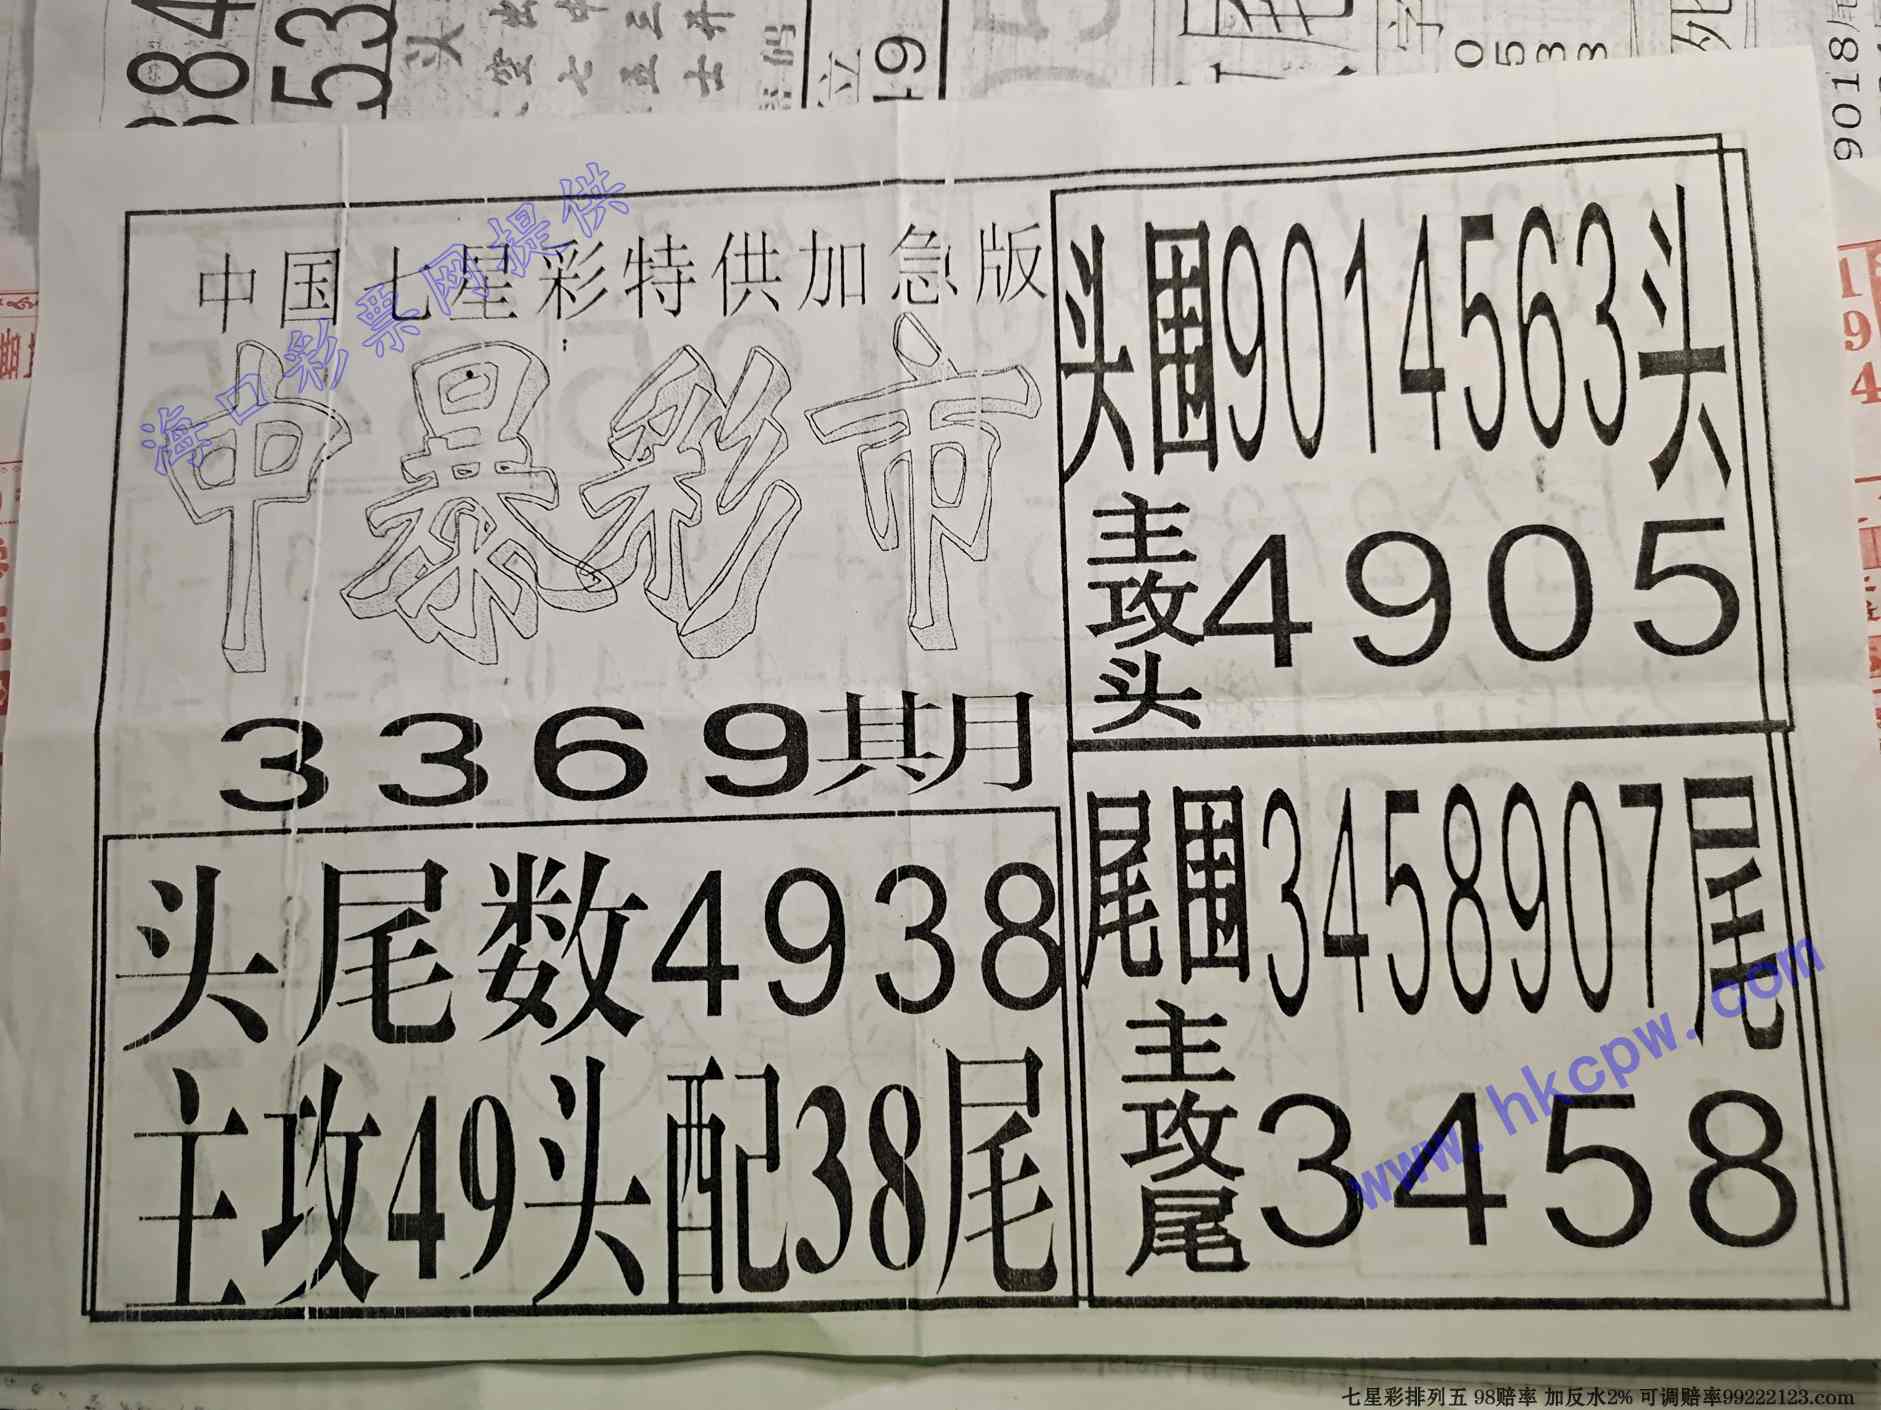 中国七星彩特供加急版
中暴彩市
3369期
头尾数4938
主攻49头配38尾
头围9014563头
主攻头4905
尾围3458907尾
主攻尾3458
海口彩票网提供
www.hkcpw.com
七星彩排列五 98赔率 加反水2% 可调赔率99222123.com
384
53
9018